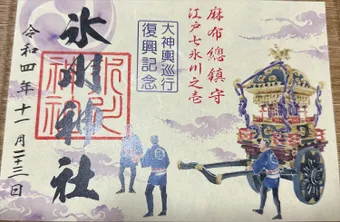 麻布總鎮守
江戸七氷川之壱
大神輿巡行
復興記念
氷川神社
令和四年十一月二十三日